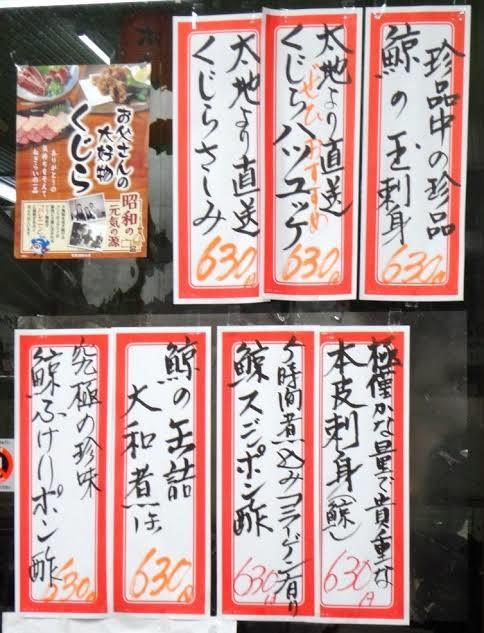 珍品中の珍品
鯨の玉刺身
630円
太地より直送
ぜひおすすめ
くじらハツユッケ
630円
太地より直送
くじらさしみ
630円
お父さんの
大好物
くじら
ありがとうの
気持ちをこめて
ねぎらいの一品
昭和の
元気の源
極僅かな量で貴重な
本皮刺身(鯨)
630円
5時間煮込みコラーゲン有り
鯨スジポン酢
630円
鯨の缶詰
大和煮
630円
究極の珍味
鯨ふけりポン酢
630円